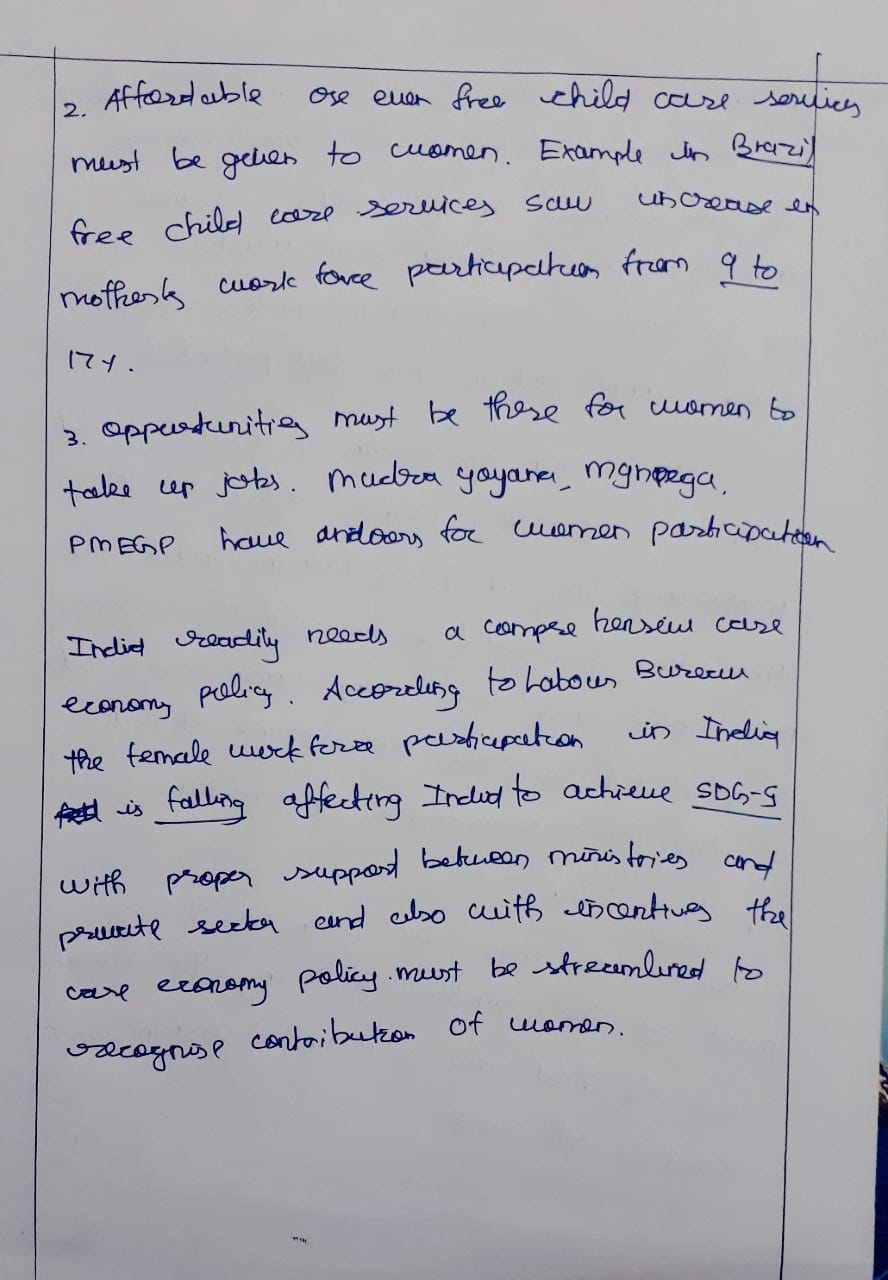 2. Affordable or even free child care services
must be given to women. Example in Brazil
free child care services saw increase in
mothers work force participation from 9 to
17%.
3. Oppurtunities must be there for women to
take up jobs. Mudra yoyana, mgnrega,
PMEGP have for women participation
India readily needs a comprehensive care
economy policy. According to Labour Bureau
the female work force participation in India
is falling affecting India to achieve SDG-5
With proper support between ministries and
private sector and also with incentives the
care economy policy must be streamlined to
recognise contribution of women.